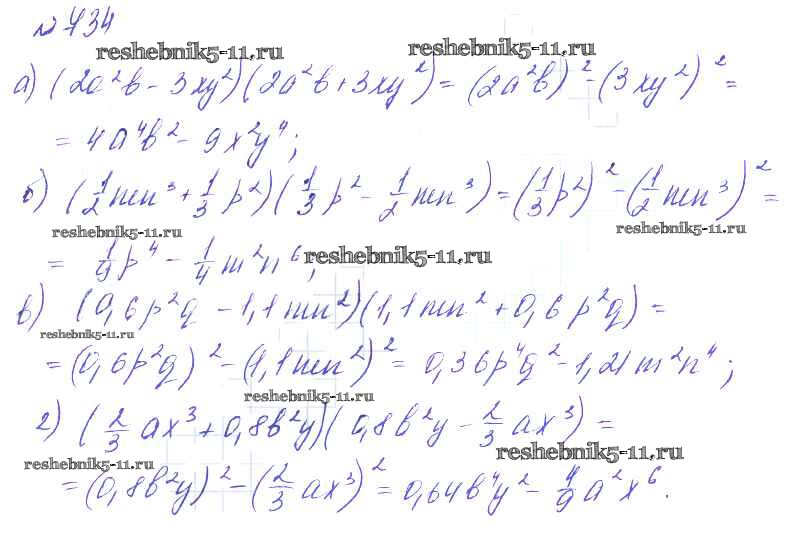 № 734
reshebnik5-11.ru reshebnik5-11.ru
а) (2a²b - 3xy²)(2a²b + 3xy²) = (2a²b)² - (3xy²)² =
= 4a⁴b² - 9x²y⁴;
б) (1/2 mn³ + 1/3 p²)(1/3 p² - 1/2 mn³) = (1/3 p²)² - (1/2 mn³)² =
reshebnik5-11.ru reshebnik5-11.ru
= 1/9 p⁴ - 1/4 m²n⁶; reshebnik5-11.ru
в) (0,6p²q - 1,1mn²)(1,1mn² + 0,6p²q) =
reshebnik5-11.ru
= (0,6p²q)² - (1,1mn²)² = 0,36p⁴q² - 1,21m²n⁴;
reshebnik5-11.ru
г) (2/3 ax³ + 0,8b²y)(0,8b²y - 2/3 ax³) =
reshebnik5-11.ru reshebnik5-11.ru
= (0,8b²y)² - (2/3 ax³)² = 0,64b⁴y² - 4/9 a²x⁶.